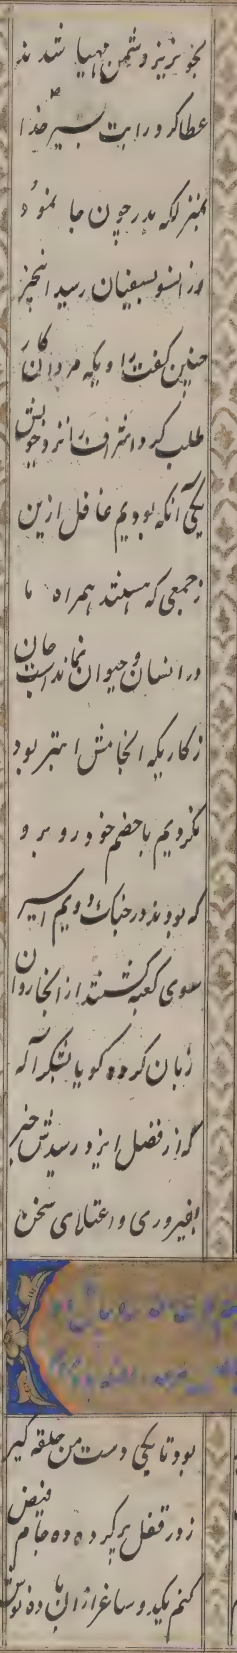 بخونریز دشمن مهیا شدند
عطا کرد رایت بسیر خدا
بمنزلگه بدر چون جا نمود
وز انسو بسفیان رسید اینخبر
چنین گفت را ویکه مردان کار
طلب کرد اشراف را نزد خویش
یکی آنکه بودیم غافل ازین
ز جمعی که هستند همراه ما
در انسان و حیوان نماندست جان
ز کاریکه انجامش ابتر بود
نکردیم با خصم خود رو برو
که بودند در جنگ دویم اسیر
سوی کعبه گشتند از انجا روان
زبان کرده گویا بشکر آله
که از فضل ایزد رسیدش خبر
بفیروری و اعتلای سخن
بود تا یکی دست من حلقه گیر
ز در قفل برگیر و ده جام فیض
کنم یکید و ساغر ازان باده نوش